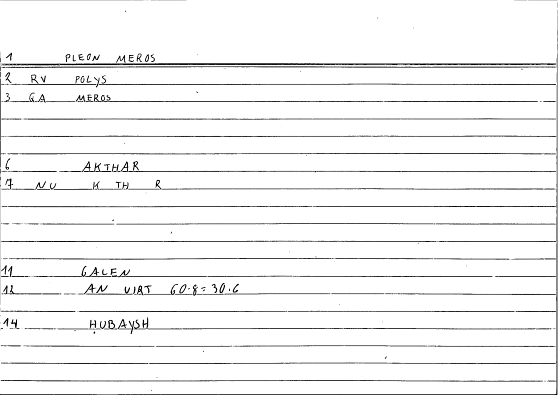 1 PLEON MEROS
2 RV POLYS
3 GA MEROS
6 AKTHAR
7 NU K TH R
11 GALEN
12 AN VIRT 60.8=30.6
14 ḤUBAYSH